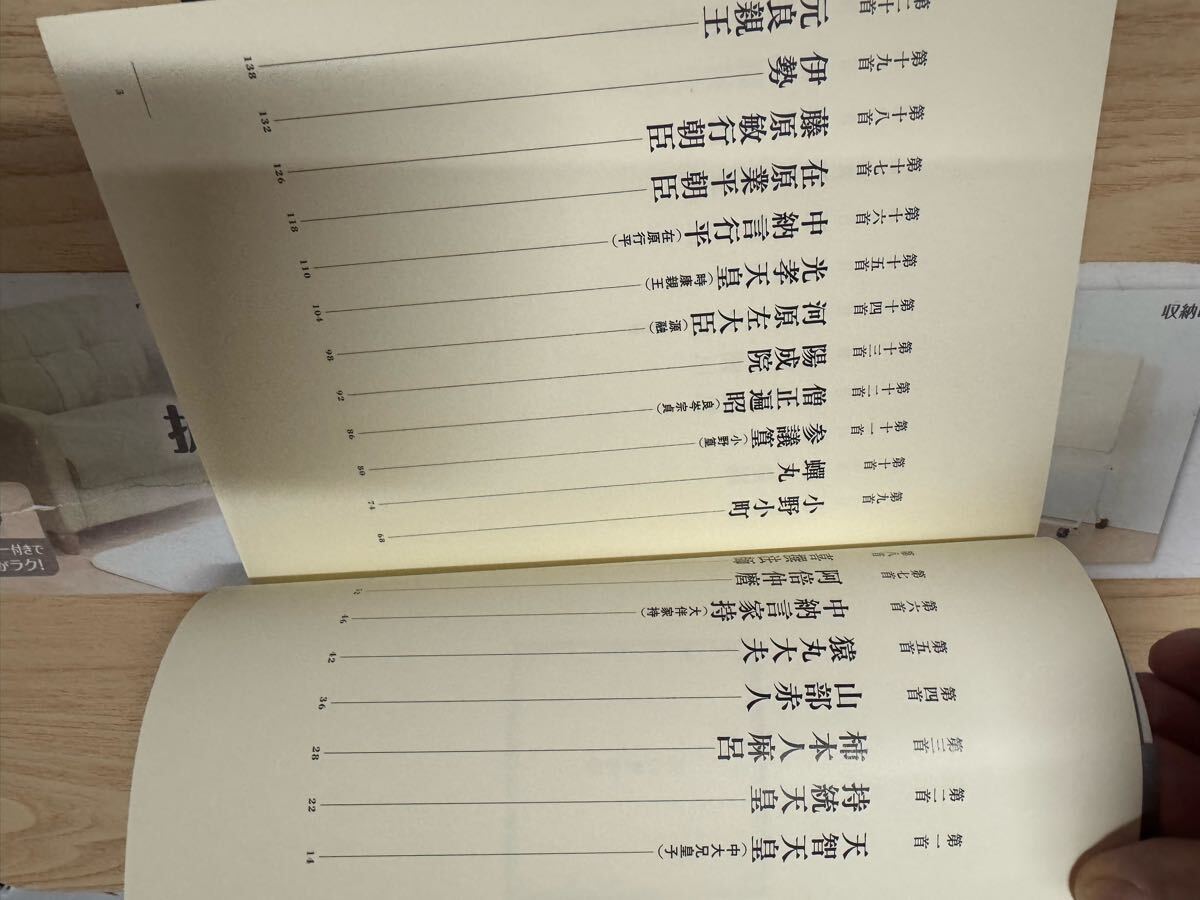 第一首 天智天皇（中大兄皇子） 14
第二首 持統天皇 22
第三首 柿本人麻呂 28
第四首 山部赤人 36
第五首 猿丸大夫 42
第六首 中納言家持（大伴家持） 46
第七首 阿倍仲麿
第八首 喜撰法師
第九首 小野小町 68
第十首 蟬丸 74
第十一首 参議篁（小野篁） 80
第十二首 僧正遍昭（良岑宗貞） 86
第十三首 陽成院 92
第十四首 河原左大臣（源融） 98
第十五首 光孝天皇（時康親王） 104
第十六首 中納言行平（在原行平） 110
第十七首 在原業平朝臣 118
第十八首 藤原敏行朝臣 126
第十九首 伊勢 132
第二十首 元良親王 138
3
収納
ー付きで
がラク!